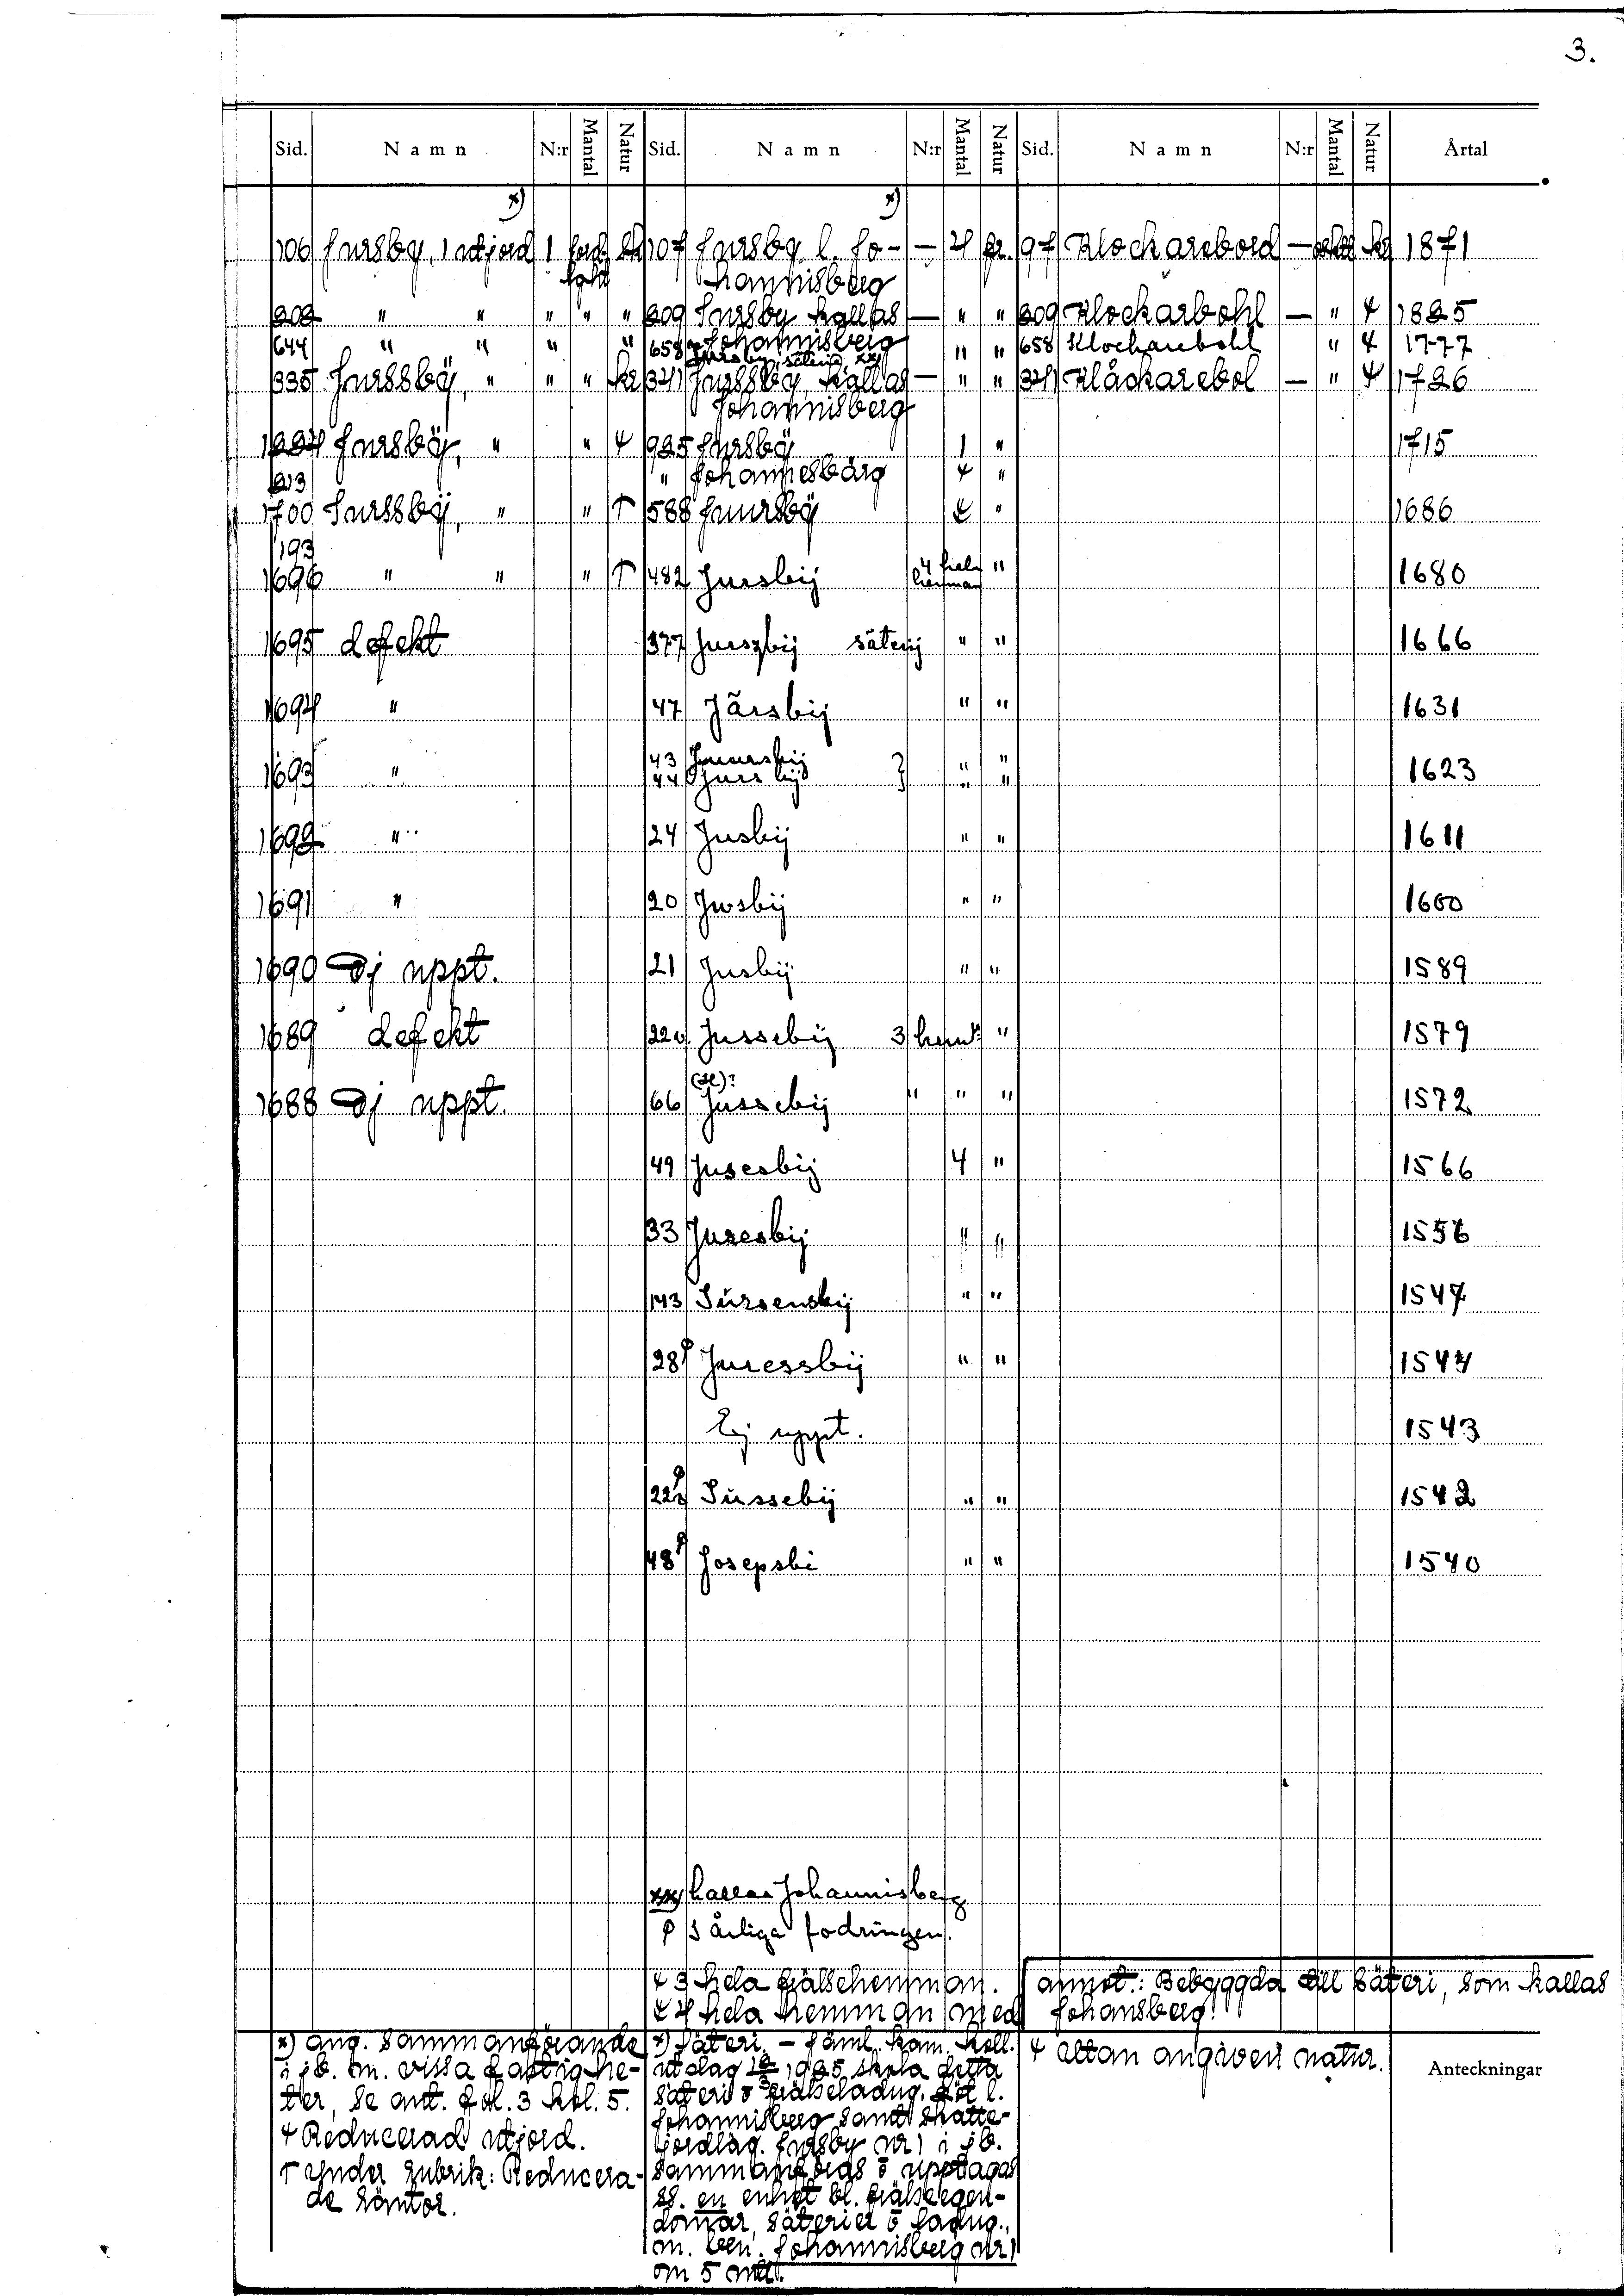 3.
Sid. Namn N:r Mantal Natur Sid. Namn N:r Mantal Natur Sid. Namn N:r Mantal Natur Årtal
x) x)
106 Jursby, 1 utjord 1 Jord- sk 107 Jursby l. Jo- — 4 fr. 97 Klockarebord — 1871
hannisberg
202 " " " " " 209 Jursby kallas — " " 209 Klockarbohl — " 4 1825
Johannisberg
644 " " " " 658 Jursby, säteri xx) " " 658 Klockarebohl " 4 1777
335 Jurssbÿ, " " " kr 341 Jurssbÿ, kallas — " " 341 Klåckarebol — " 4 1726
Johannisberg
1224 Jursbÿ, " " 4 925 Jursbÿ 1 " 1715
" Johannesbärg 4 "
213
1700 Jurssbÿ, " " ↑ 588 Juursbÿ " 1686
193
1696 " " " ↑ 482 Jursbij 4 hela hemman " 1680
1695 defekt 377 Jurszbij säterij " " 1666
1694 " 47 Järsbij " " 1631
1693 " 43 Juursbij } " " 1623
44 Jursbij " "
1692 " 24 Jusbij " " 1611
1691 " 20 Jusbij " " 1600
1690 Ej uppt. 21 Jusbij " " 1589
1689 defekt 22v. Jussebij 3 hemn: " 1579
1688 Ej uppt. 66 Jussebij " " " 1572
49 Jusesbij 4 " 1566
33 Juresbij " " 1556
143 Jursensbij " " 1547
28 Juressbij " " 1544
Ej uppt. 1543
22 Jussebij " " 1542
48 Josepsbi " " 1540
xx) kallas Johannisberg
φ I årliga fodringen.
4 3 hela frälsehemman.
4 hela hemman med
annot.: Bebyggda till säteri, som kallas
Johansberg.
x) ang. sammanförande
i jb. m. vissa fastighe-
ter, se ant. fol. 3 kol. 5.
4 Reducerad utjord.
↑ Under rubrik: Reducera-
de räntor.
x) Säteri. – Jäml. kam. koll.
utslag 1925 skola detta
säteri o frälseladug. l.
Johannisberg samt skatte-
jordläg. Jursby nr 1 i jb.
sammanföras o upptagas
ss. en enhet bl. frälseegen-
domar, säterier o ladug.,
m. ben. Johannisberg nr 1
om 5 mtl.
4 Utan angiven natur.
Anteckningar